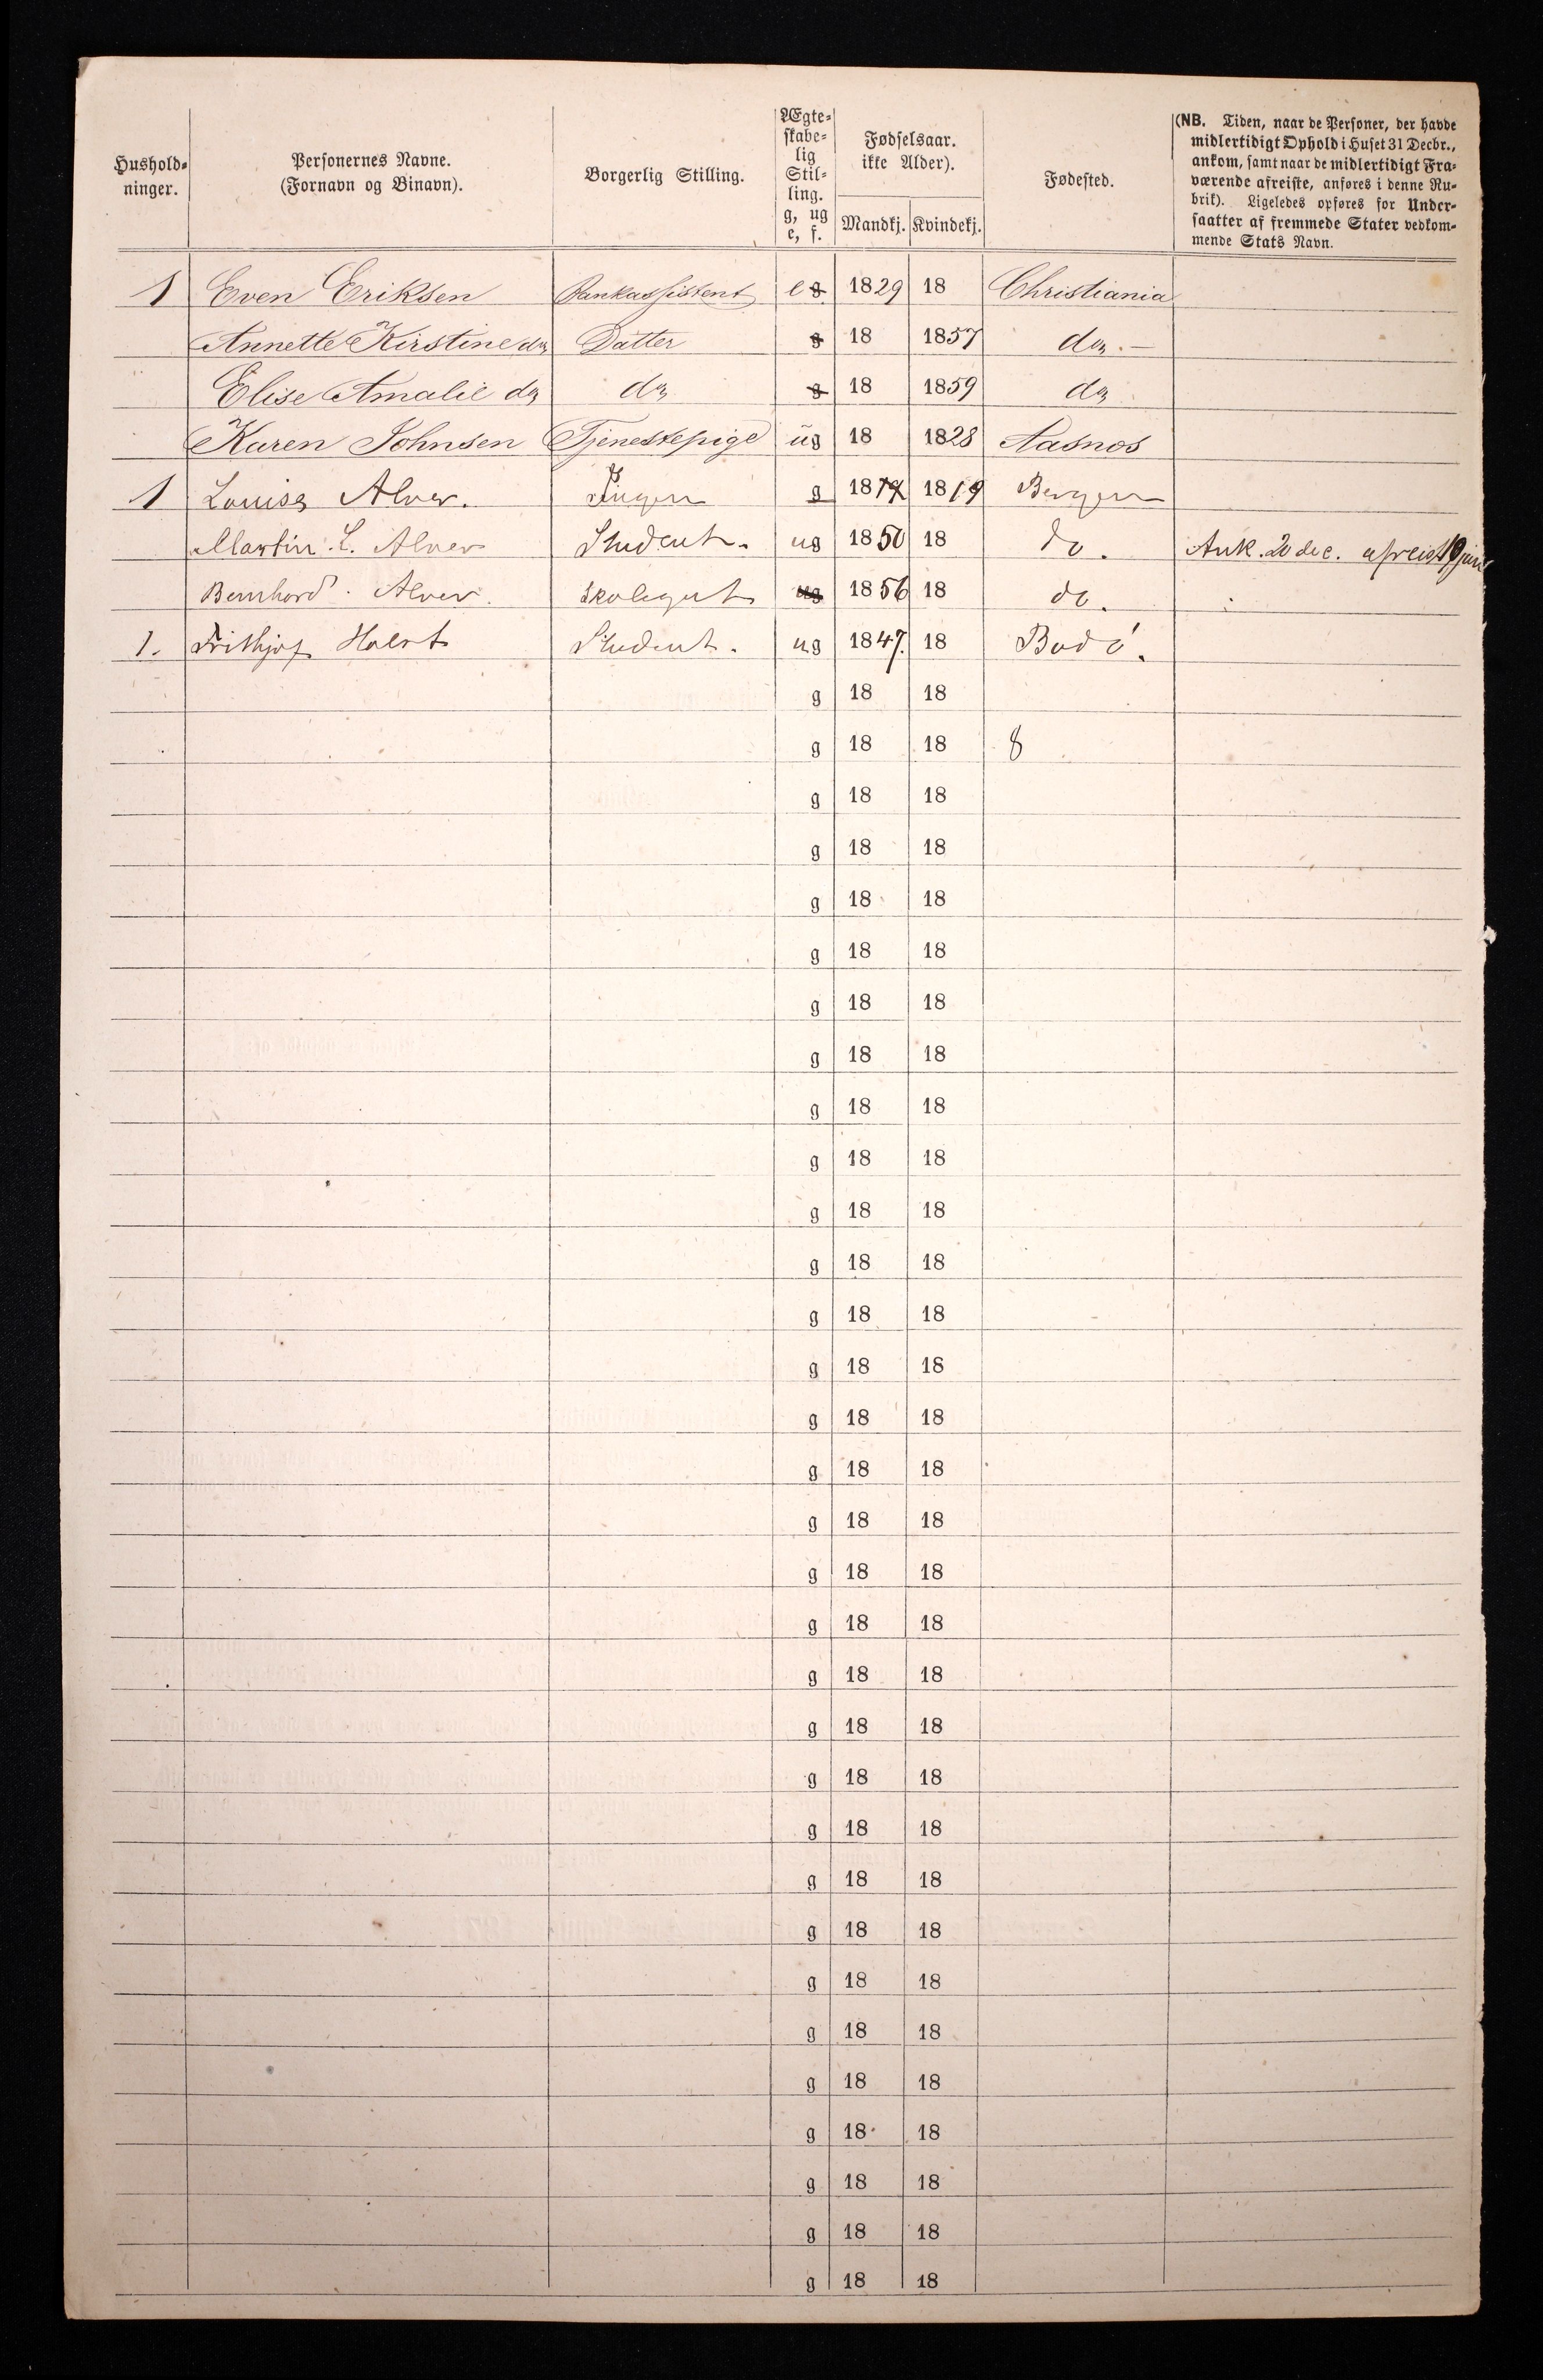 Hushold-
ninger.
Personernes Navne.
(Fornavn og Binavn).
Borgerlig Stilling.
Ægte-
skabe-
lig
Stil-
ling.
g, ug
e, f.
Fødselsaar.
ikke Alder).
Mandkj. Kvindekj.
Fødested.
(NB. Tiden, naar de Personer, der havde
midlertidigt Ophold i Huset 31 Decbr.,
ankom, samt naar de midlertidigt Fra-
værende afreiste, anføres i denne Ru-
brik). Ligeledes opføres for Under-
saatter af fremmede Stater vedkom-
mende Stats Navn.
1 Even Eriksen Bankassistent e g 1829 18 Christiania
Annette Kirstine do Datter g 18 1857 do. —
Elise Amalie do do g 18 1859 do
Karen Johnsen Tjenestepige ug 18 1828 Aasnes
1 Louise Alver. Ingen g 18 1819 Bergen
Martin L. Alver Student. ug 1850 18 do. Ank. 20 dec. afreist
Bernhard Alver. Skolegut ug 1856 18 do.
1. Frithjof Holst Student. ug 1847. 18 Bodö.
g 18 18
g 18 18 8
g 18 18
g 18 18
g 18 18
g 18 18
g 18 18
g 18 18
g 18 18
g 18 18
g 18 18
g 18 18
g 18 18
g 18 18
g 18 18
g 18 18
g 18 18
g 18 18
g 18 18
g 18 18
g 18 18
g 18 18
g 18 18
g 18 18
g 18 18
g 18 18
g 18 18
g 18 18
g 18 18
g 18 18
g 18 18
g 18 18